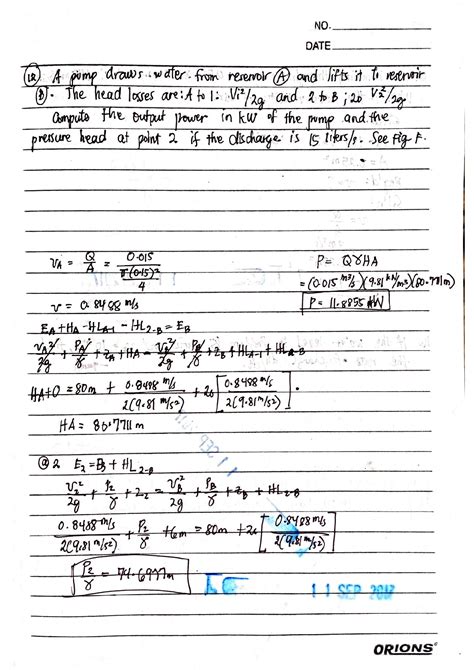 NO.
DATE
12 A pump draws water from reservoir A and lifts it to reservoir
B. The head losses are: A to 1: V₁²/2g and 2 to B; 20 V₂²/2g.
Compute the output power in kW of the pump and the
pressure head at point 2 if the discharge is 15 liters/s. See Fig F.
VA = Q/A = 0.015 / (π(0.15)²/4)
P = QγHA
= (0.015 m³/s)(9.81 kN/m³)(80.771m)
v = 0.8488 m/s
P = 11.8855 kW
EA + HA - HLA-1 - HL2-B = EB
VA²/2g + PA/γ + ZA + HA = VB²/2g + PB/γ + ZB + HLA-1 + HL2-B
HA+0 = 80m + 0.8488 m/s / 2(9.81 m/s²) + 20 [0.8488 m/s / 2(9.81 m/s²)]
HA = 80.7711m
@ 2 E2 = EB + HL2-B
V2²/2g + P2/γ + Z2 = VB²/2g + PB/γ + ZB + HL2-B
0.8488 m/s / 2(9.81 m/s²) + P2/γ + 6m = 80m + 20 [0.8488 m/s / 2(9.81 m/s²)]
P2/γ = 74.6977m
11 SEP 2017
ORIONS